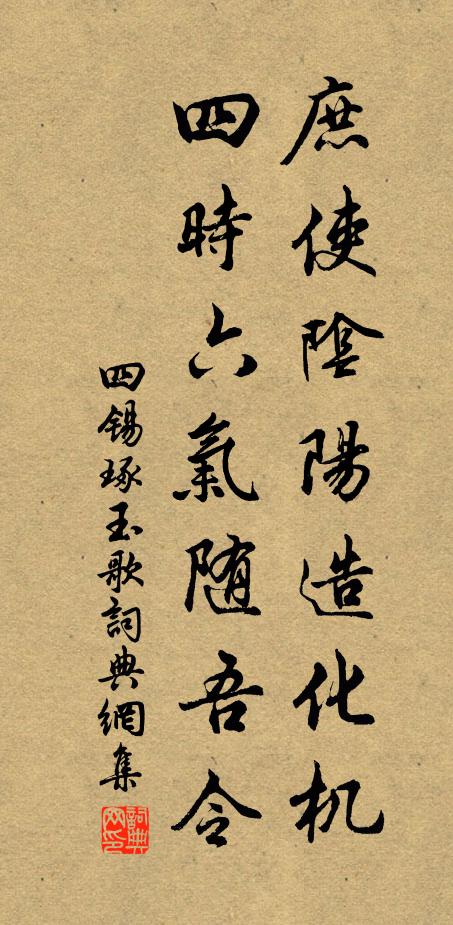 庶使陰陽造化机
四時六氣随吾令
四锡琢玉歌詞典網集
詞典网印